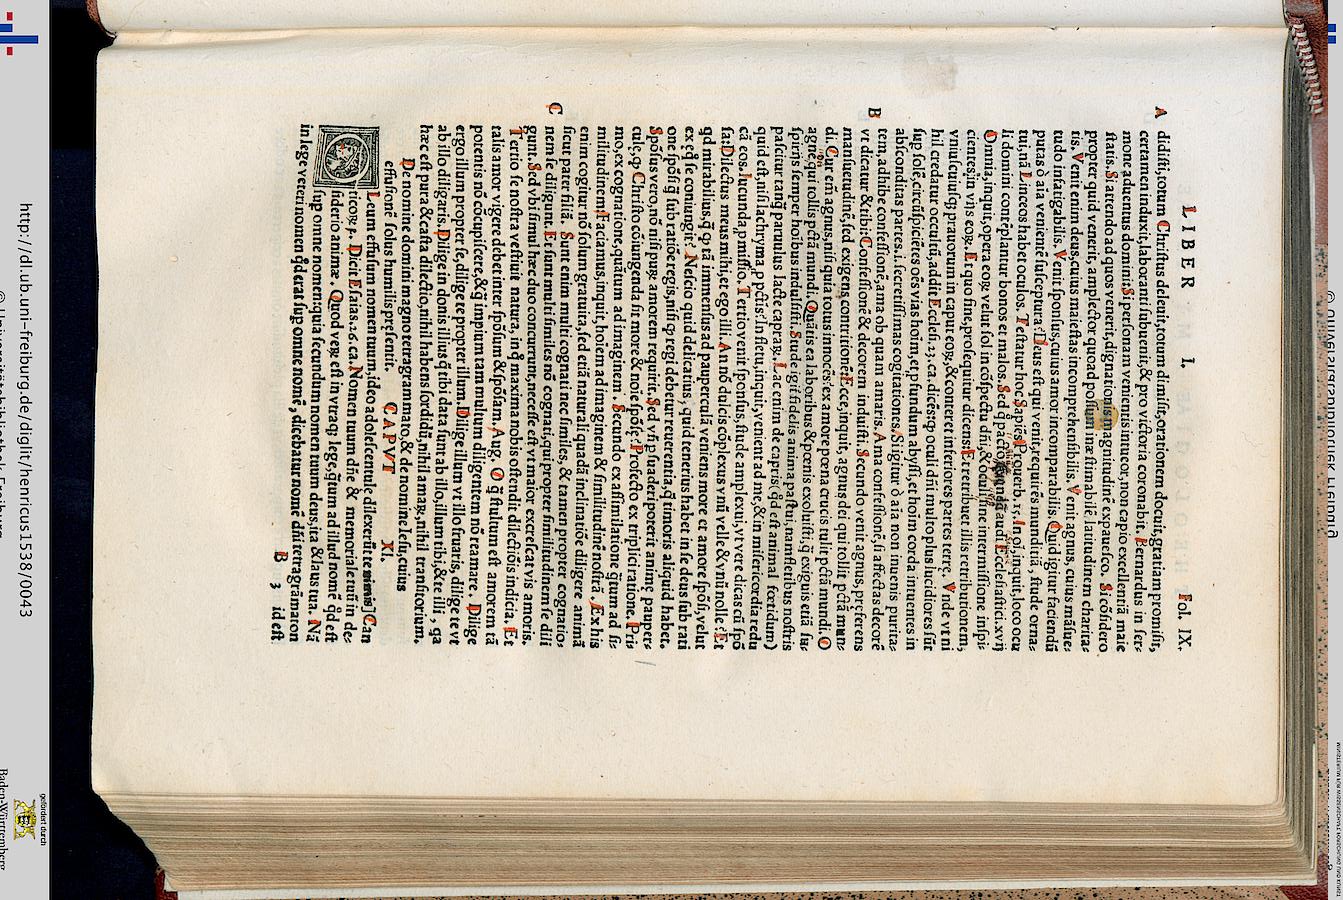 LIBER I. Fol. IX.
A didisti, totum Christus deleuit, totum dimisit, orationem docuit, gratiam promisit,
certamen induxit, laboranti subuenit, & pro victoria coronabit. Bernardus in ser⸗
mone aduentus domini: Si personam venientis intueor, non capio excellentiã maie
statis. Si attendo ad quos venerit, dignationis magnitudinẽ expauesco. Si cõsidero
propter quid venerit, amplector quoad possum inæstimabilẽ latitudinem charita⸗
tis. Venit enim deus, cuius maiestas incomprehensibilis. Venit agnus, cuius mãsue⸗
tudo infatigabilis. Venit sponsus, cuius amor incomparabilis. Quid igitur faciendũ
putas ò aĩa venientẽ susceptura? Deus est qui venit, requirẽs mundiciã, stude orna⸗
tui, nã Linceos habet oculos. Testatur hoc Sapiẽs Prouerb. 15. In oĩ, inquit, loco ocu
li domini contẽplantur bonos et malos. Ecclesiastici. xvij
Omnia, inquit, opera eoꝝ velut sol in cõspectu dñi, & oculi sine intermissione inspi⸗
cientes, in vijs eoꝝ. Et quo fine, prosequitur dicens: Et retribuet illis retributionem,
vniuscuiusq̃ prauorum in caput eoꝝ, & conteret inferiores partes terrę. Vnde vt ni
hil credatur occultũ, addit Ecclesi. 23. ca. dicẽs: ꝙ oculi dñi multo plus lucidiores sũt
sup solẽ, circũspiciẽtes oẽs vias hoĩm, et ꝓfundum abyssi, et hoĩm corda intuentes in
absconditas partes. i. secretissimas cogitationes. Si igitur ò aĩa non inuenis purita⸗
B tem, adhibe confessionẽ, ama ob quam amaris. Ama confessionẽ, si affectas decorẽ
vt dicatur & tibi: Confessionẽ & decorem induisti. Secundo venit agnus, pręferens
mansuetudinẽ, sed exigens contritionẽ: Ecce, inquit, agnus dei qui tollit pctã mun⸗
di. Cur em̃ agnus, nisi quia totus innocẽs: ex amore pœna crucis tulit pctã mundi. O
agne, qui tollis pctã mundi. Quãtis ea laboribus & pœnis exoluisti, q̃ exiguis etiã su⸗
spirijs semper hoibus indulsisti. Stude igit̃ fidelis anima pastui, nam fletibus nostris
pascitur tanq̃ paruulus lacte capraꝝ. Lac enim de capris (qđ est animal fœtidum)
quid est, nisi lachryma ꝓ pctĩs? In fletu, inquit, venient ad me, & in misericordia redu
cã eos. Iucunda ꝓmissio. Tertio venit sponsus, stude amplexui, vt vere dicas cũ spõ
sa: Dilectus meus mihi, et ego illi. An nõ dulcis cõplexus vnũ velle & vnũ nolle? Et
qđ mirabilius, ꝙ tã immensus ad paupercula veniens more et amore spõsi, velut
ex ęq̃ se coniungit? Nescio quid delicatius, quid tenerius habet in se deus sub rati
one spõsi q̃ sub ratiõe regis, nisi ꝙ regi debetur reuerentia, q̃ timoris aliquid habet,
Spõsus vero, nõ nisi puꝝ amorem requirit. Sed vñ p̃sua deri poterit animę pauper⸗
culę, ꝙ Christo coniungenda sit more & noĩe spõsę? Profecto ex triplici ratione. Pri
mo, ex cognatione, quãtum ad imaginem. Secundo ex assimilatione q̃tum ad si⸗
militudinem. Faciamus, inquit, hoĩem ad imaginem & similitudinẽ nostrã. Ex his
C enim cogitur nõ solum gratuita, sed etiã naturali quadã inclinatiõe diligere animã
sicut pater filiã. Sunt enim multi cognati nec similes, & tamen propter cognatio⸗
nem se diligunt. Et sunt multi similes nõ cognati, qui propter similitudinem se dili
gunt. Sed vbi simul hæc duo concurrunt, necesse est vt maior excrescat vis amoris.
Tertio se nostra vestiuit natura, in q̃ maxima nobis ostendit dilectiõis indicia. Et
talis amor vigere debet inter spõsum & spõsam. Aug. O q̃ stultum est amorem tã
potentis nõ cõcupiscere, & q̃ impium tam multum diligentem nõ reamare. Dilige
ergo illum propter se, dilige te propter illum. Dilige illum vt illo fruaris, dilige te vt
ab illo diligaris. Dilige in donis illius q̃ tibi data sunt ab illo, illum tibi, & te illi, qa
hæc est pura & casta dilectio, nihil habens sordidũ, nihil amaꝝ, nihil transitorium.
De nomine domini magno tetragrammato, & de nomine Iesu, cuius
effusionẽ solus humilis pręsensit. CAPVT XI.
OLeum effusum nomen tuum, ideo adolescentulę dilexerũt te nimis] Can
ticoꝝ. 1. Dicit Esaias. 26. ca. Nomen tuum dñe & memoriale tuũ in de⸗
siderio animæ. Quod veꝝ est in vtraq̃ lege, q̃tum ad illud nomẽ qđ est
sup omne nomen: quia secundum nomen tuum deus, ita & laus tua. Nã
in lege veteri nomen qđ erat sup omne nomẽ, dicebatur nomẽ dñi tetragrãmaton
B 3 id est
http://dl.ub.uni-freiburg.de/diglit/henricus1538/0043
© Universitätsbibliothek Freiburg
gefördert durch
Baden-Württemberg